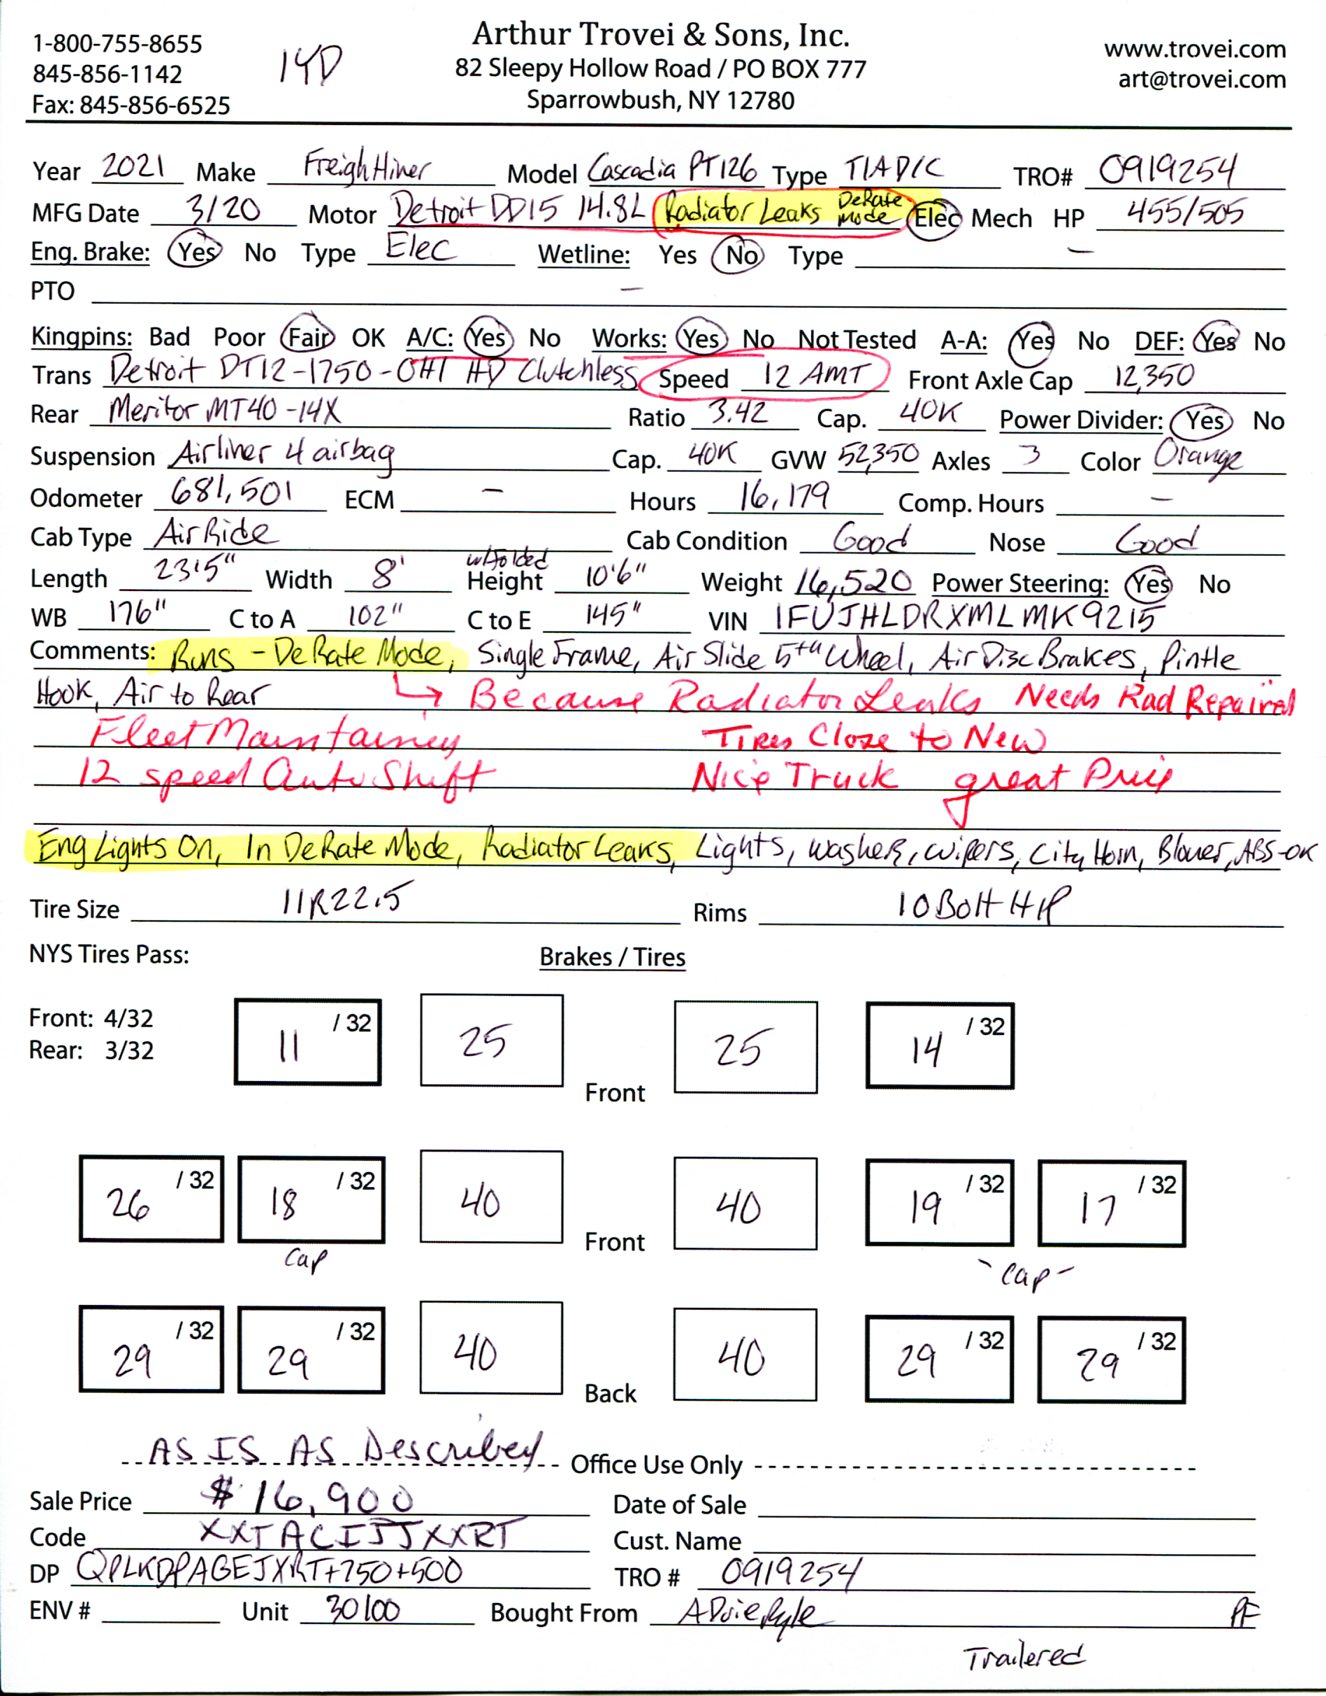 Arthur Trovei & Sons, Inc.
1-800-755-8655
845-856-1142
Fax: 845-856-6525
14D
82 Sleepy Hollow Road / PO BOX 777
Sparrowbush, NY 12780
www.trovei.com
art@trovei.com
Year 2021 Make Freightliner Model Cascadia PT126 Type T/A D/C TRO# 0919254
MFG Date 3/20 Motor Detroit DD15 14.8L Radiator Leaks DeRate Mode Elec Mech HP 455/505
Eng. Brake: Yes No Type Elec Wetline: Yes No Type —
PTO —
Kingpins: Bad Poor Fair OK A/C: Yes No Works: Yes No Not Tested A-A: Yes No DEF: Yes No
Trans Detroit DT12-1750-OH1 HD Clutchless Speed 12 AMT Front Axle Cap 12,350
Rear Meritor MT40-14X Ratio 3.42 Cap. 40K Power Divider: Yes No
Suspension Airliner 4 airbag Cap. 40K GVW 52,350 Axles 3 Color Orange
Odometer 681,501 ECM — Hours 16,179 Comp. Hours —
Cab Type Air Ride Cab Condition Good Nose Good
Length 23'5" Width 8' w/folded Height 10'6" Weight 16,520 Power Steering: Yes No
WB 176" C to A 102" C to E 145" VIN 1FUJHLDRXMLMK9215
Comments: Runs - DeRate Mode, Single Frame, Air Slide 5th Wheel, Air Disc Brakes, Pintle
Hook, Air to Rear → Because Radiator Leaks Needs Rad Repaired
Fleet Maintained Tires Close to New
12 speed Auto Shift Nice Truck great Price
Eng Lights On, In DeRate Mode, Radiator Leaks, Lights, washer, wipers, City Horn, Blower, ABS-OK
Tire Size 11R22.5 Rims 10 Bolt HP
NYS Tires Pass: Brakes / Tires
Front: 4/32
Rear: 3/32
11 /32 25 Front 25 14 /32
26 /32 18 /32 40 Front 40 19 /32 17 /32
Cap - Cap -
29 /32 29 /32 40 Back 40 29 /32 29 /32
AS IS AS Described Office Use Only
Sale Price $16,900 Date of Sale
Code XXTACIJJXXRT Cust. Name
DP QPLKDPAGEJXRT+750+500 TRO # 0919254
ENV # Unit 30100 Bought From PF
Trailered